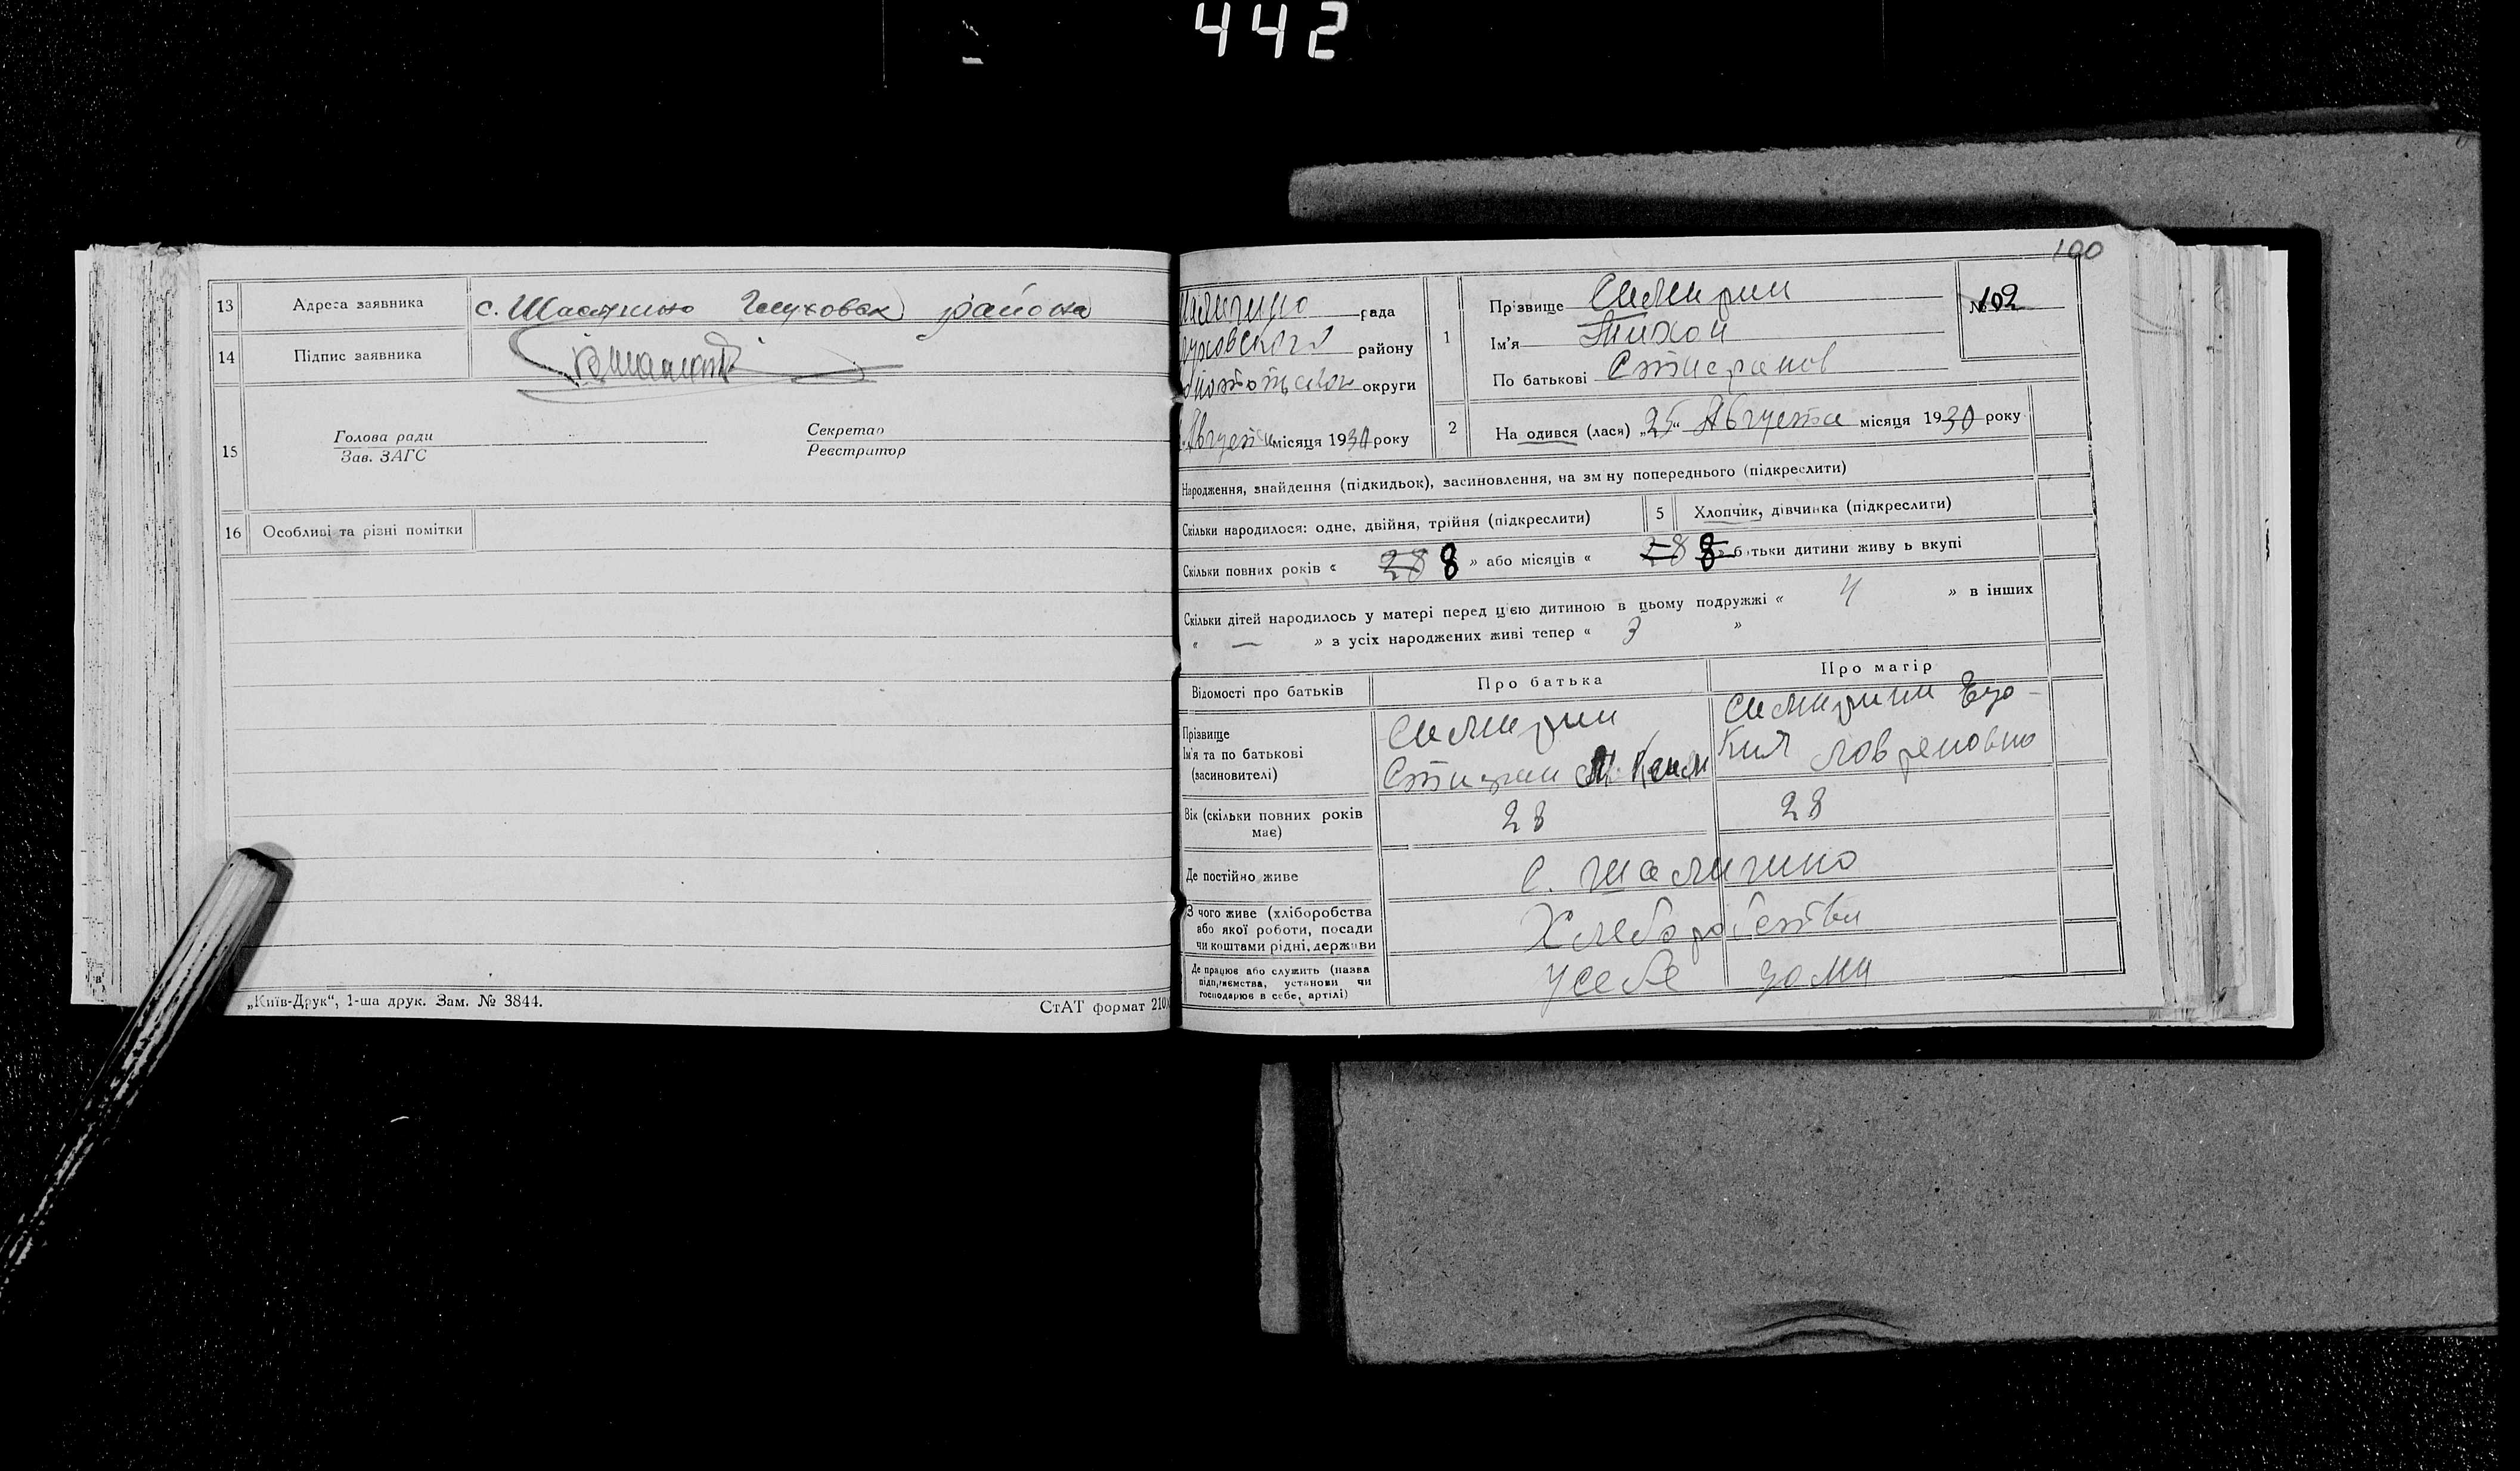 442
13 Адреса заявника с. Шалигино Глуховск района
14 Підпис заявника
15 Голова ради Секретар
Зав. ЗАГС Реєстратор
16 Особливі та різні помітки
„Київ-Друк“, 1-ша друк. Зам. № 3844. СтАТ формат 210
100
рада
району
округи
Августа місяця 1930 року
1 Прізвище
Ім'я Тихон
По батькові Стифанов
№ 102
2 На одився (лася) „25“ Августа місяця 1930 року
Народження, знайдення (підкидьок), засиновлення, на зм ну попереднього (підкреслити)
Скільки народилося: одне, двійня, трійня (підкреслити) 5 Хлопчик, дівчинка (підкреслити)
Скільки повних років « 28 8 » або місяців « 28 8 » б тьки дитини живу ь вкупі
Скільки дітей народилось у матері перед цією дитиною в цьому подружжі « 4 » в інших
« — » з усіх народжених живі тепер « 3 »
Відомості про батьків Про батька Про матір
Прізвище
Ім'я та по батькові
(засиновителі)
Стифан
Евдо-
кия Лавреновна
Вік (скільки повних років має) 28 28
Де постійно живе с. Шалигино
З чого живе (хліборобства
або якої роботи, посади
чи коштами рідні, держави
Хлеборобства
Де працює або служить (назва
підприємства, установи чи
господарює в себе, артілі)
у себе дома